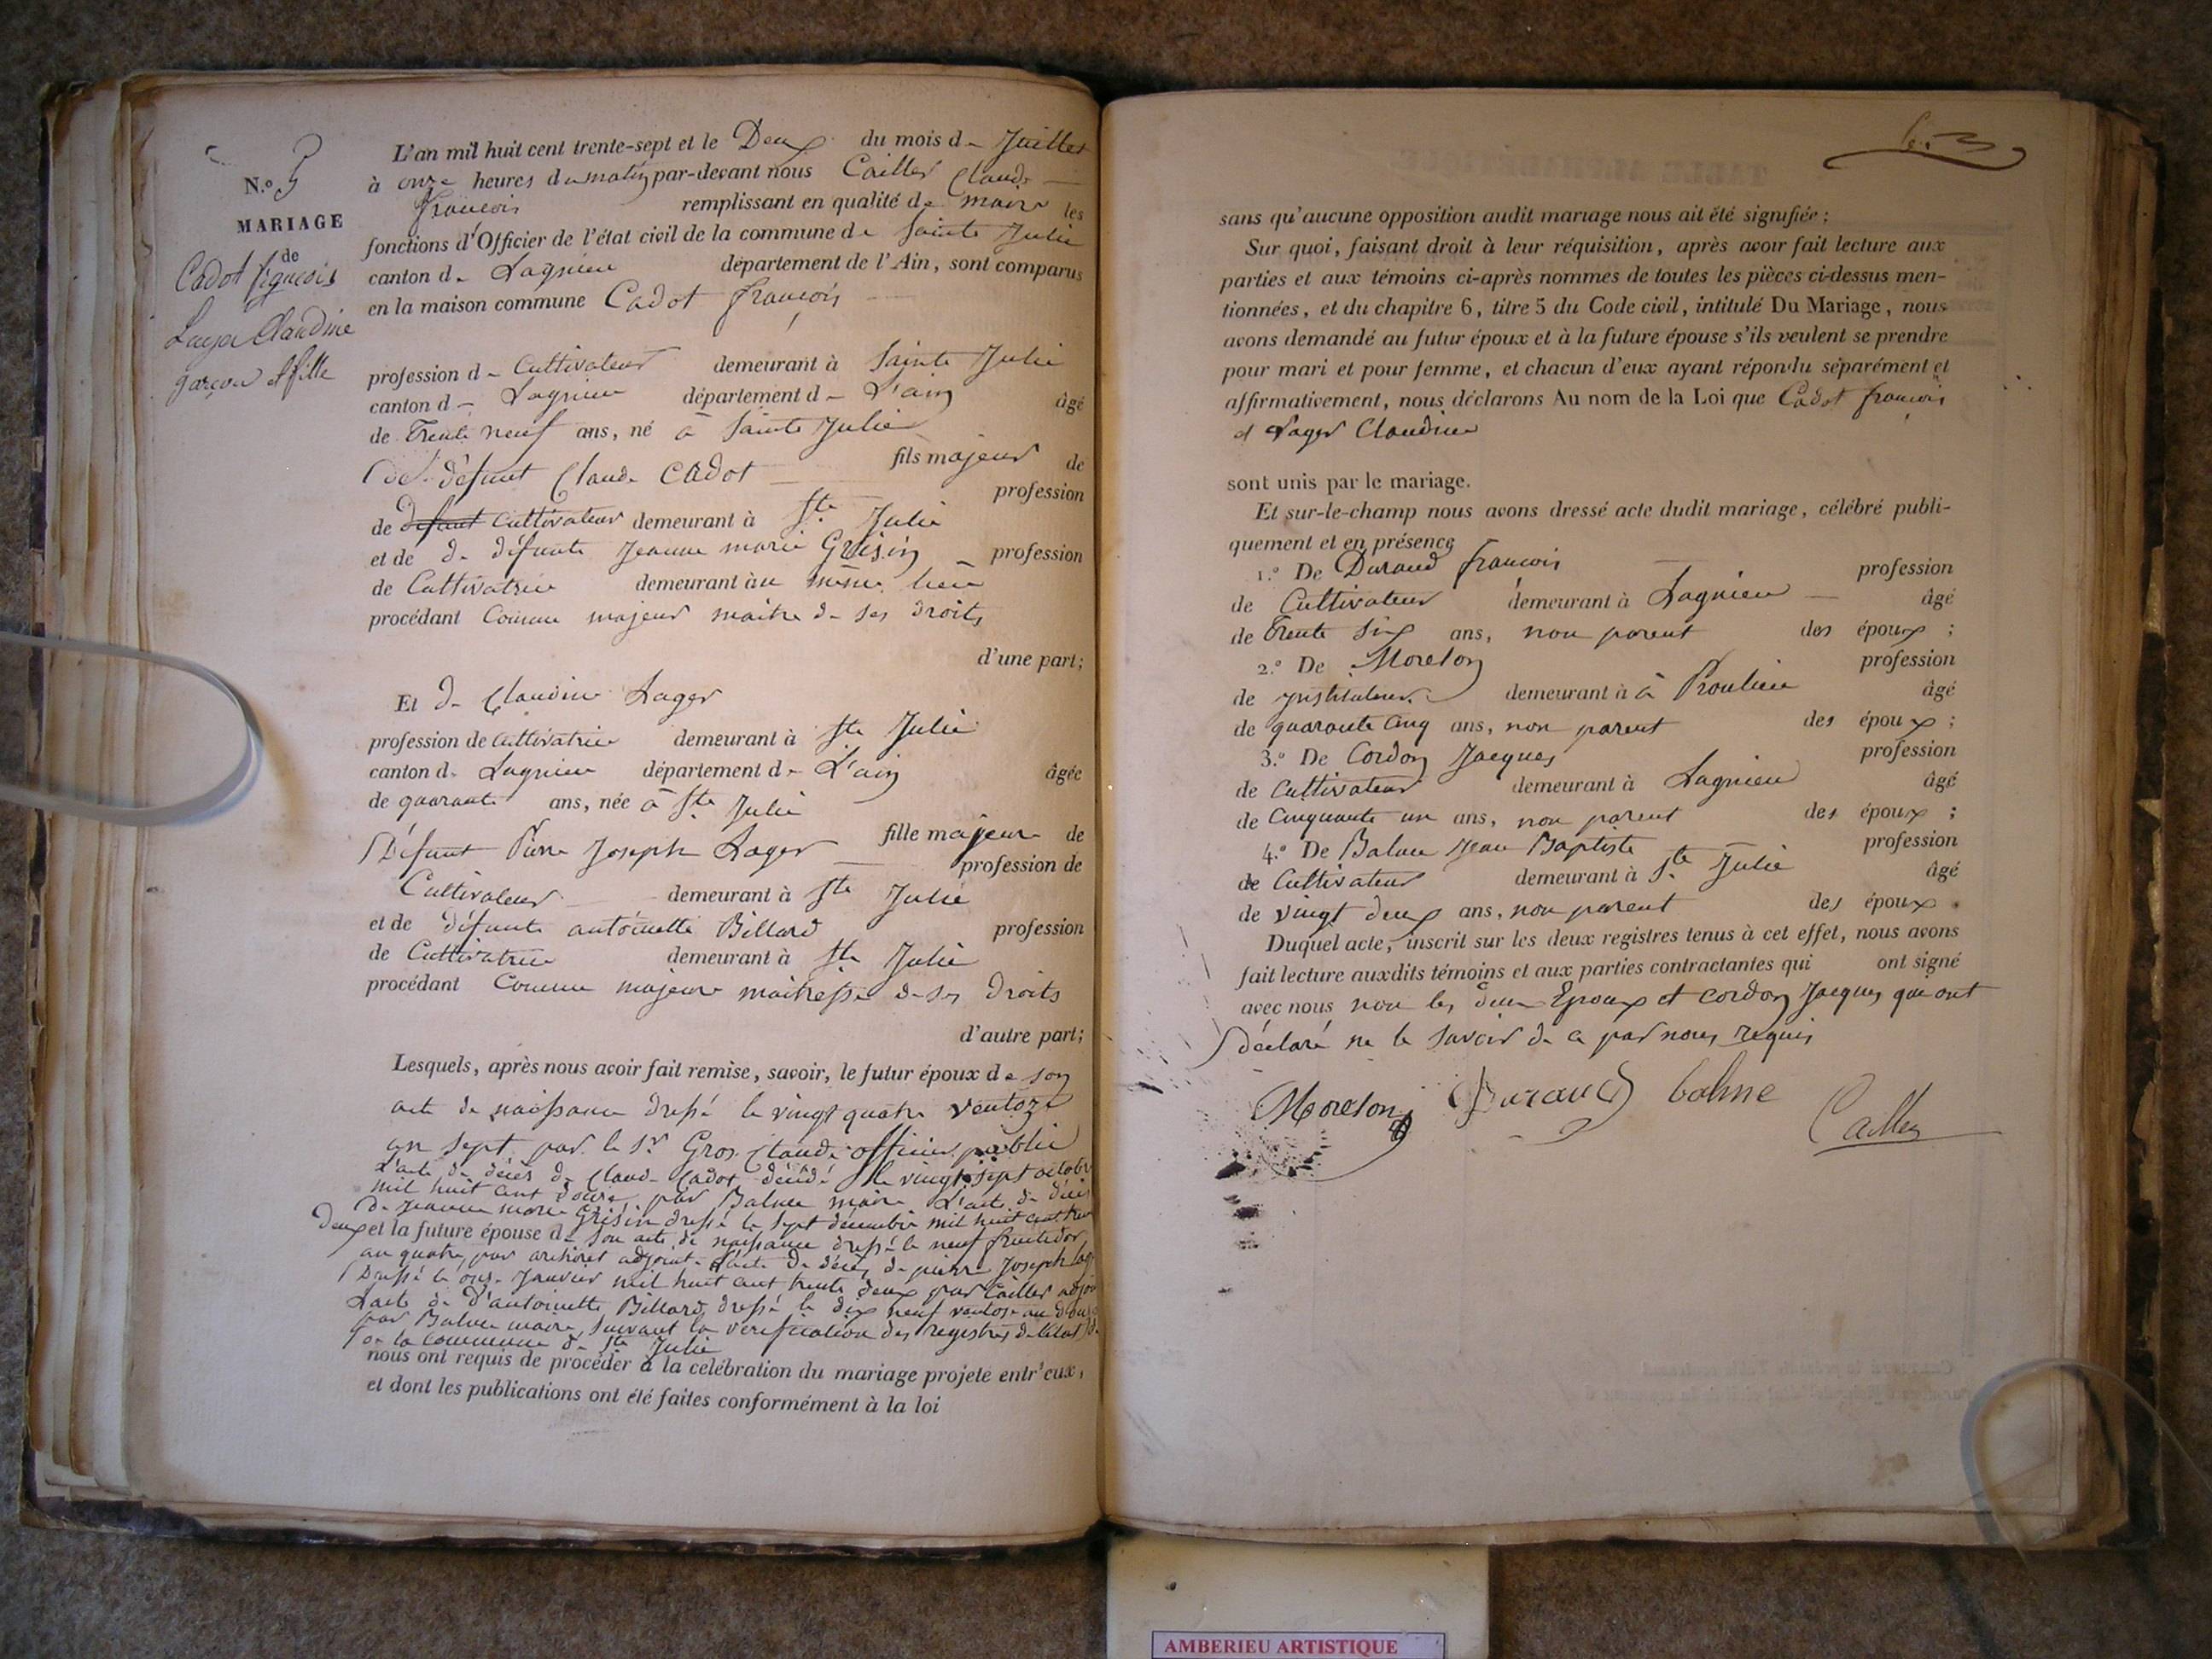 N.o 5
MARIAGE
de
Cadot françois
Lager Claudine
garçon et fille
L'an mil huit cent trente-sept et le Deux du mois de Juillet
à onze heures du matin par-devant nous Cailler Claude
françois remplissant en qualité de maire les
fonctions d'Officier de l'état civil de la commune de Sainte Julie
canton de Lagnieu département de l'Ain, sont comparus
en la maison commune Cadot françois
profession de Cultivateur demeurant à Sainte Julie
canton de Lagnieu département de L'ain âgé
de Trente neuf ans, né à Sainte Julie
fils majeur de
de défunt Claude Cadot profession
de défunt cultivateur demeurant à Ste Julie
et de de défunte Jeanne marie Grisin profession
de Cultivatrice demeurant à u même lieu
procédant Comme majeur maitre de ses droits
d'une part;
Et de Claudine Lager
profession de cultivatrice demeurant à Ste Julie
canton de Lagnieu département de L'ain âgée
de quarante ans, née à Ste Julie
fille majeure de
Défunt Pierre Joseph Lager profession de
Cultivateur demeurant à Ste Julie
et de défunte antoinette Billard profession
de Cultivatrice demeurant à Ste Julie
procédant Comme majeure maitresse de ses Droits
d'autre part;
Lesquels, après nous avoir fait remise, savoir, le futur époux de son
acte de naissance dressé le vingt quatre ventoze
an sept par le Sr Gros Claude officier public
L'acte de décès de Claude Cadot décédé le vingt sept octobre
mil huit cent douze par Balme maire L'acte de décès
de Jeanne marie Grisin dressé le sept décembre mil huit cent
Deux et la future épouse de son acte de naissance dressé le neuf fructidor
an quatre par adjoint L'acte de décès de pierre Joseph
Dressé le onze Janvier mil huit cent trente deux par Cailler
L'acte de D'antoinette Billard dressé le dix neuf ventose an
par Balme maire, suivant la verification des registres de l'état
de la commune de Ste Julie
nous ont requis de procéder à la celébration du mariage projeté entr'eux,
et dont les publications ont été faites conformément à la loi
sans qu'aucune opposition audit mariage nous ait été signifiée;
Sur quoi, faisant droit à leur réquisition, après avoir fait lecture aux
parties et aux témoins ci-après nommés de toutes les pièces ci-dessus men-
tionnées, et du chapitre 6, titre 5 du Code civil, intitulé Du Mariage, nous
avons demandé au futur époux et à la future épouse s'ils veulent se prendre
pour mari et pour femme, et chacun d'eux ayant répondu séparément et
affirmativement, nous déclarons Au nom de la Loi que Cadot françois
et Lager Claudine
sont unis par le mariage.
Et sur-le-champ nous avons dressé acte dudit mariage, célébré publi-
quement et en présence
1.o De Durand françois profession
de Cultivateur demeurant à Lagnieu âgé
de Trente Six ans, non parent des époux;
2.o De Moreton profession
de instituteur demeurant à à Proulieu âgé
de quarante cinq ans, non parent des époux;
3.o De Cordon Jacques profession
de Cultivateur demeurant à Lagnieu âgé
de Cinquante un ans, non parent des époux;
4.o De Balme Jean Baptiste profession
de Cultivateur demeurant à Ste Julie âgé
de vingt deux ans, non parent des époux.
Duquel acte, inscrit sur les deux registres tenus à cet effet, nous avons
fait lecture auxdits témoins et aux parties contractantes qui ont signé
avec nous non les deux Epoux et Cordon Jacques qui ont
déclaré ne le savoir de ce par nous requis
Moreton Durand balme
Cailler
AMBERIEU ARTISTIQUE